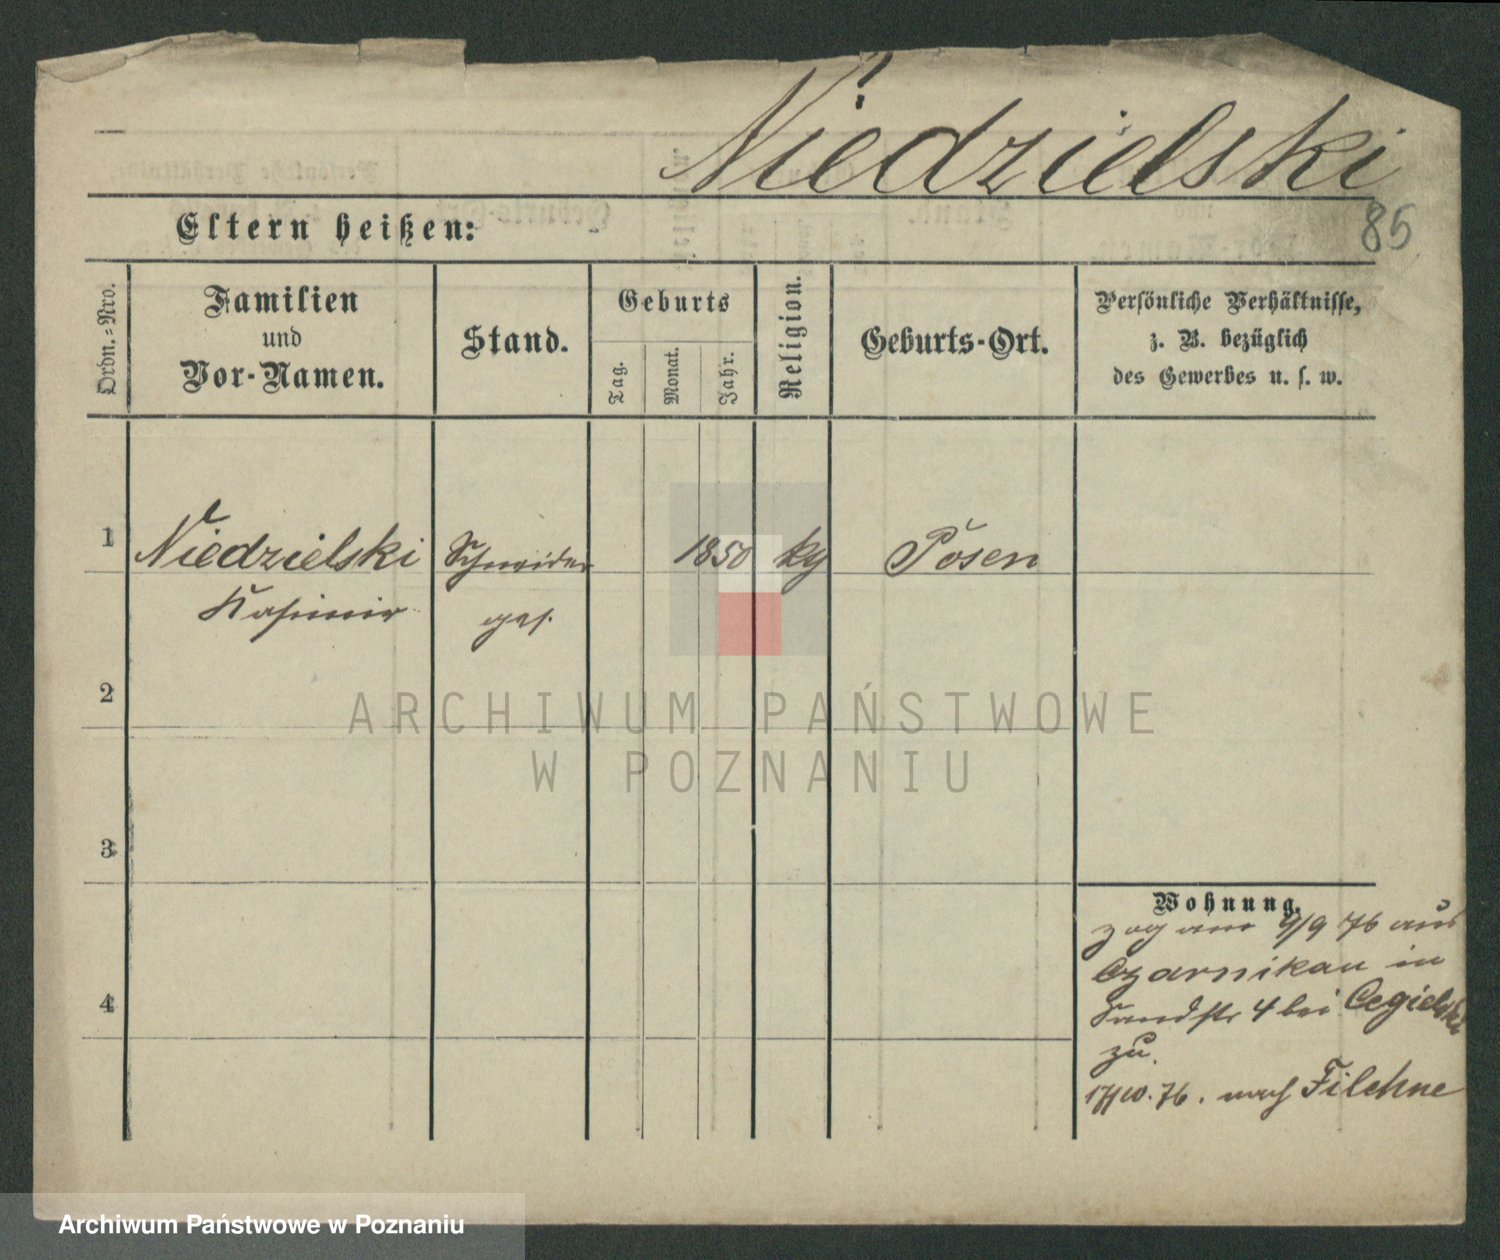 Niedzielski
85
Eltern heißen:
Ordn.-Nro.
Familien
und
Vor-Namen.
Stand.
Geburts
Tag.
Monat.
Jahr.
Religion.
Geburts-Ort.
Persönliche Verhältnisse,
z. B. bezüglich
des Gewerbes u. s. w.
1 Niedzielski Schneider 1850 kg Posen
Kasimir ges.
2
3
4
Wohnung.
zog am 9/9 76 aus
Czarnikau in
Sandstr 4 bei Cegielski
zu.
17/10. 76. nach Filehne
ARCHIWUM PAŃSTWOWE
W POZNANIU
Archiwum Państwowe w Poznaniu